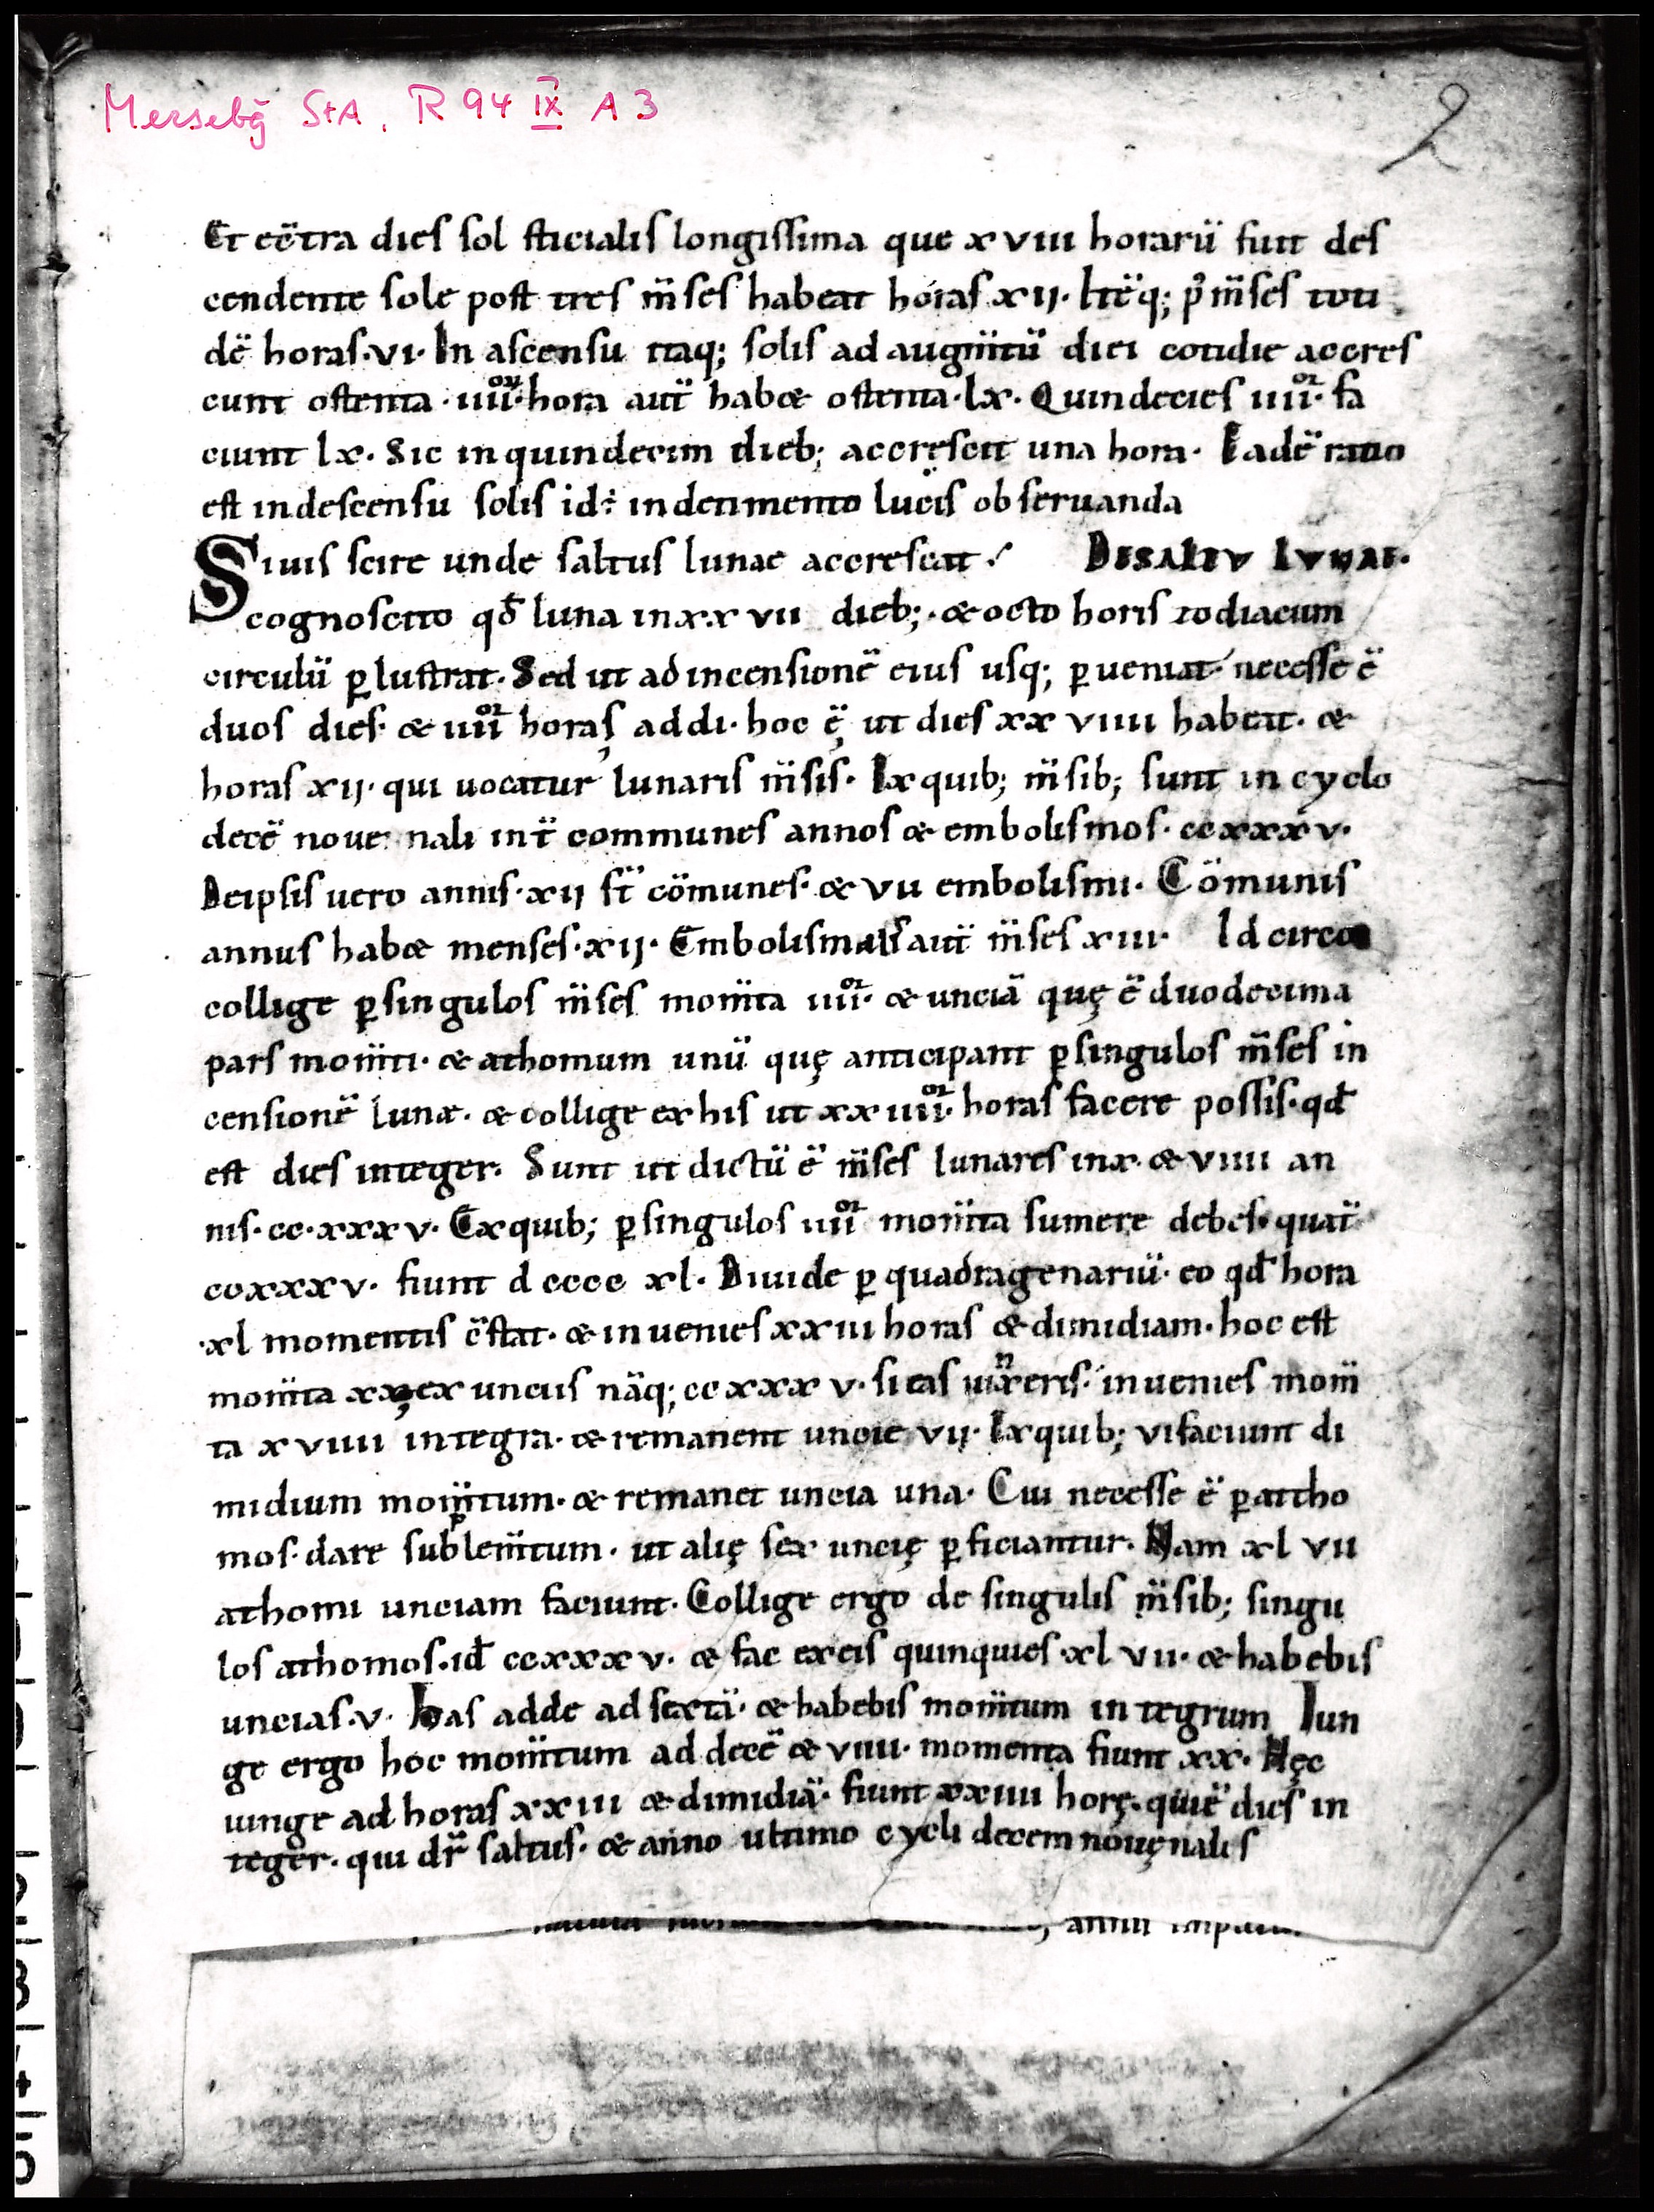 Mersebg̃ StA. R 94 IX A 3
2
Et ec̄tra dies sol sticialis longissima que xviii horarū fuit des
cendente sole post tres m̄ses habeat horas xii· Itēq; p᷒ m̄ses toti
dē horas·vi· In ascensu itaq; solis ad augm̄tū diei cotidie accres
cunt ostenta·iiii^or·hora aut̄ habet ostenta·lx· Quindecies iiii^or· fa
ciunt lx· Sic in quindecim dieb; accrescit una hora· Eadē ratio
est in descensu solis id· in detrimento lucis observanda
Si uis scire unde saltus lunae accrescat· DE SALTU LUNAE·
cognoscito qđ luna in xx vii dieb;· & octo horis zodiacum
circulū ꝑlustrat· Sed ut ad incensionē eius usq; ꝑueniat· necesse ē
duos dies· & iiii^or horas addi· hoc ē, ut dies xx viiii habeat· &
horas xii· qui uocatur lunaris m̄sis· Ex quib; m̄sib; sunt in cyclo
decē nouenali int̄ communes annos & embolismos· ccxxxv·
De ipsis uero annis·xii st̄ cōmunes· & vii embolismi· Cōmunis
annus habet menses·xii· Embolismalis aut̄ m̄ses xiii· Idcirco
collige ꝑ singulos m̄ses mom̄ta iiii^or· & unciā quę ē duodecima
pars mom̄ti· & athomum unū quę anticipant ꝑ singulos m̄ses in
censionē lunæ· & collige ex his ut xx iiii^or· horas facere possis· qđ
est dies integer· Sunt ut dictū ē m̄ses lunares in x· & viiii an
nis· cc·xxxv· Ex quib; ꝑ singulos iiii^or mom̄ta sumere debes· quat̄
ccxxxv· fiunt dcccc xl· Diuide ꝑ quadragenariū· eo qđ hora
·xl momentis c̄stat· & inuenies xxiii horas & dimidiam· hoc est
mom̄ta xx, ex unciis nāq; ccxxxv· si eas inxeris· inuenies mom̄
ta xviiii integra· & remanent uncie vii· Ex quib; vi faciunt di
midium mom̄tum· & remanet uncia una· Cui necesse ē ꝑ attho
mos· dare sublem̄tum· ut alię sex uncię ꝑficiantur· Nam xl vii
athomi unciam faciunt· Collige ergo de singulis m̄sib; singu
los athomos· iđ ccxxxv· & fac ex eis quinquies·xl vii· & habebis
uncias·v· has adde ad sextā· & habebis mom̄tum integrum Iun
ge ergo hoc mom̄tum ad decē & viiii· momenta fiunt xx· Hęc
iunge ad horas xxiii & dimidiā· fiunt xxiiii horę· qui ē dies in
teger· qui dr̄ saltus· & anno ultimo cycli decemnouęnalis